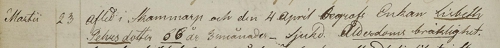 Martii 23 afled i Mammarp och den 4 April begrofs Enkan Lisbeth
dotter 86 år 3 månader - Sjukd. Ålderdoms bräklighet.